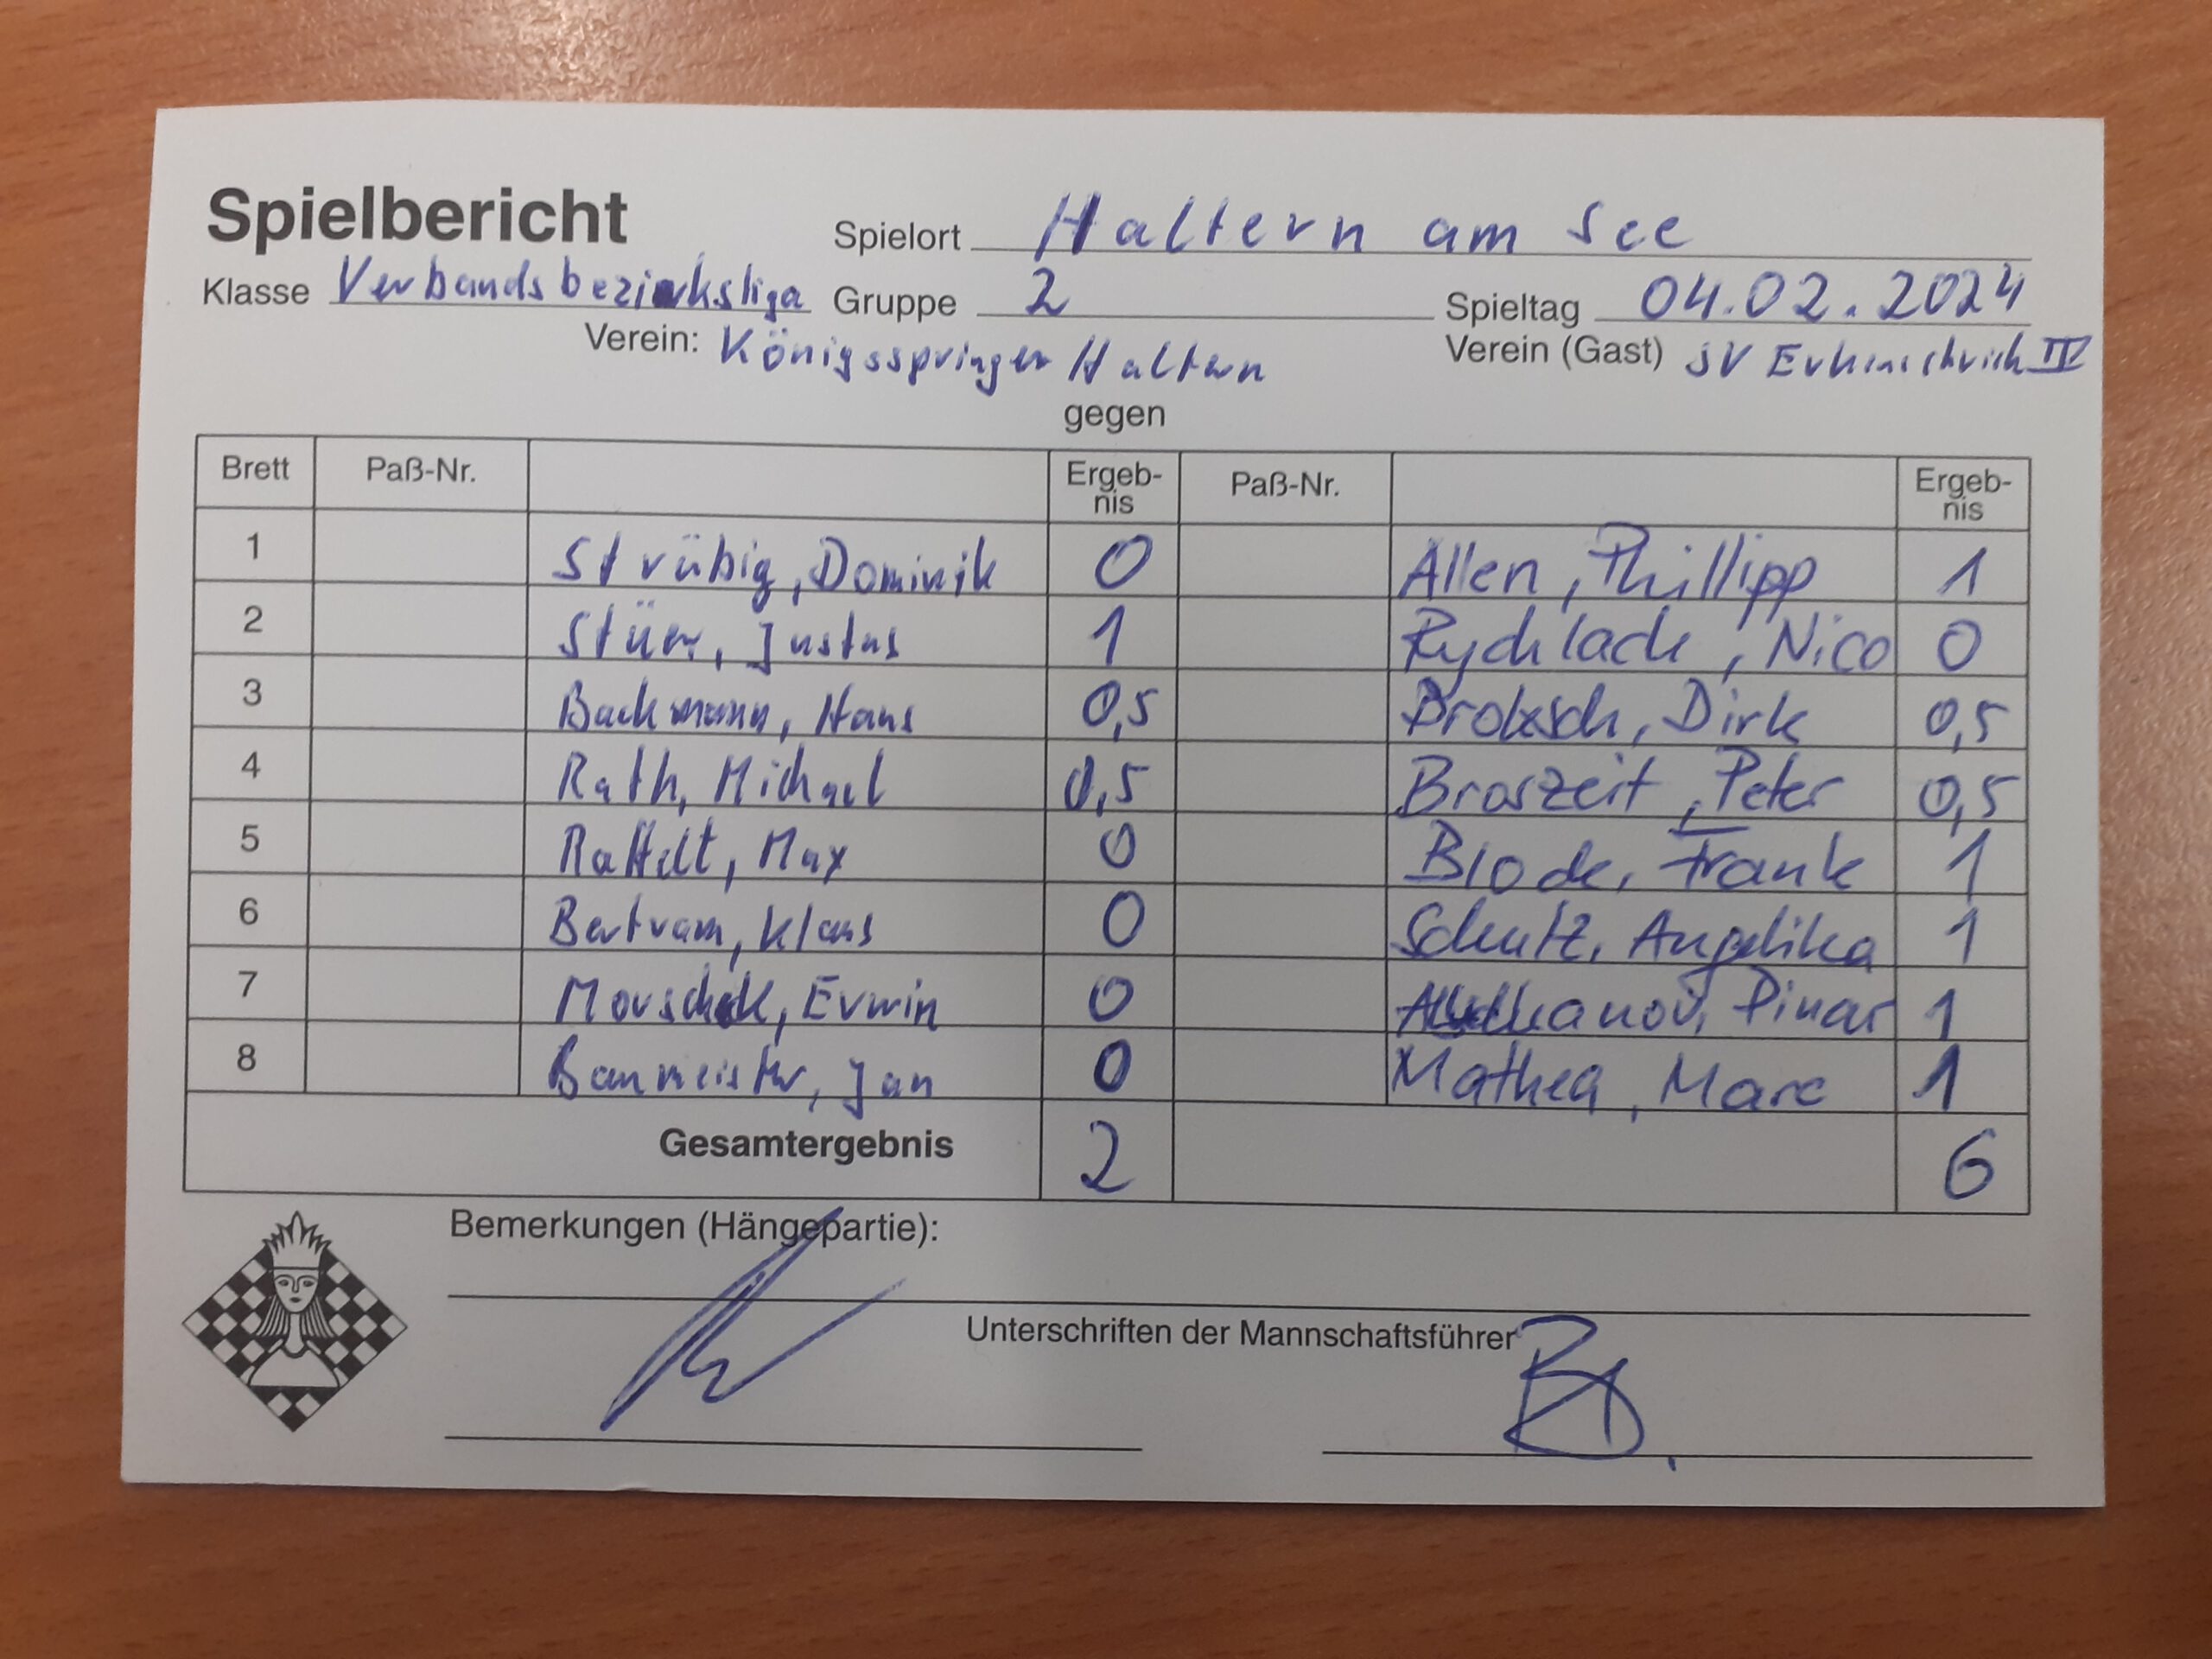 Spielbericht Spielort Haltern am See
Klasse Verbandsbezirksliga Gruppe 2 Spieltag 04.02.2024
Verein: Königsspringer Haltern Verein (Gast) SV Erkenschwick III
gegen
Brett Paß-Nr. Ergeb-nis Paß-Nr. Ergeb-nis
1 Strübig, Dominik 0 Allen, Phillipp 1
2 Stüer, Justus 1 Rychlack, Nico 0
3 Backmann, Hans 0,5 Broksch, Dirk 0,5
4 Rath, Michael 0,5 Broszeit, Peter 0,5
5 Raffelt, Max 0 Block, Frank 1
6 Bertram, Klaus 0 Schutz, Angelika 1
7 Erwin 0 Pinar 1
8 Baumeister, Jan 0 Mathea, Marc 1
Gesamtergebnis 2 6
Bemerkungen (Hängepartie):
Unterschriften der Mannschaftsführer